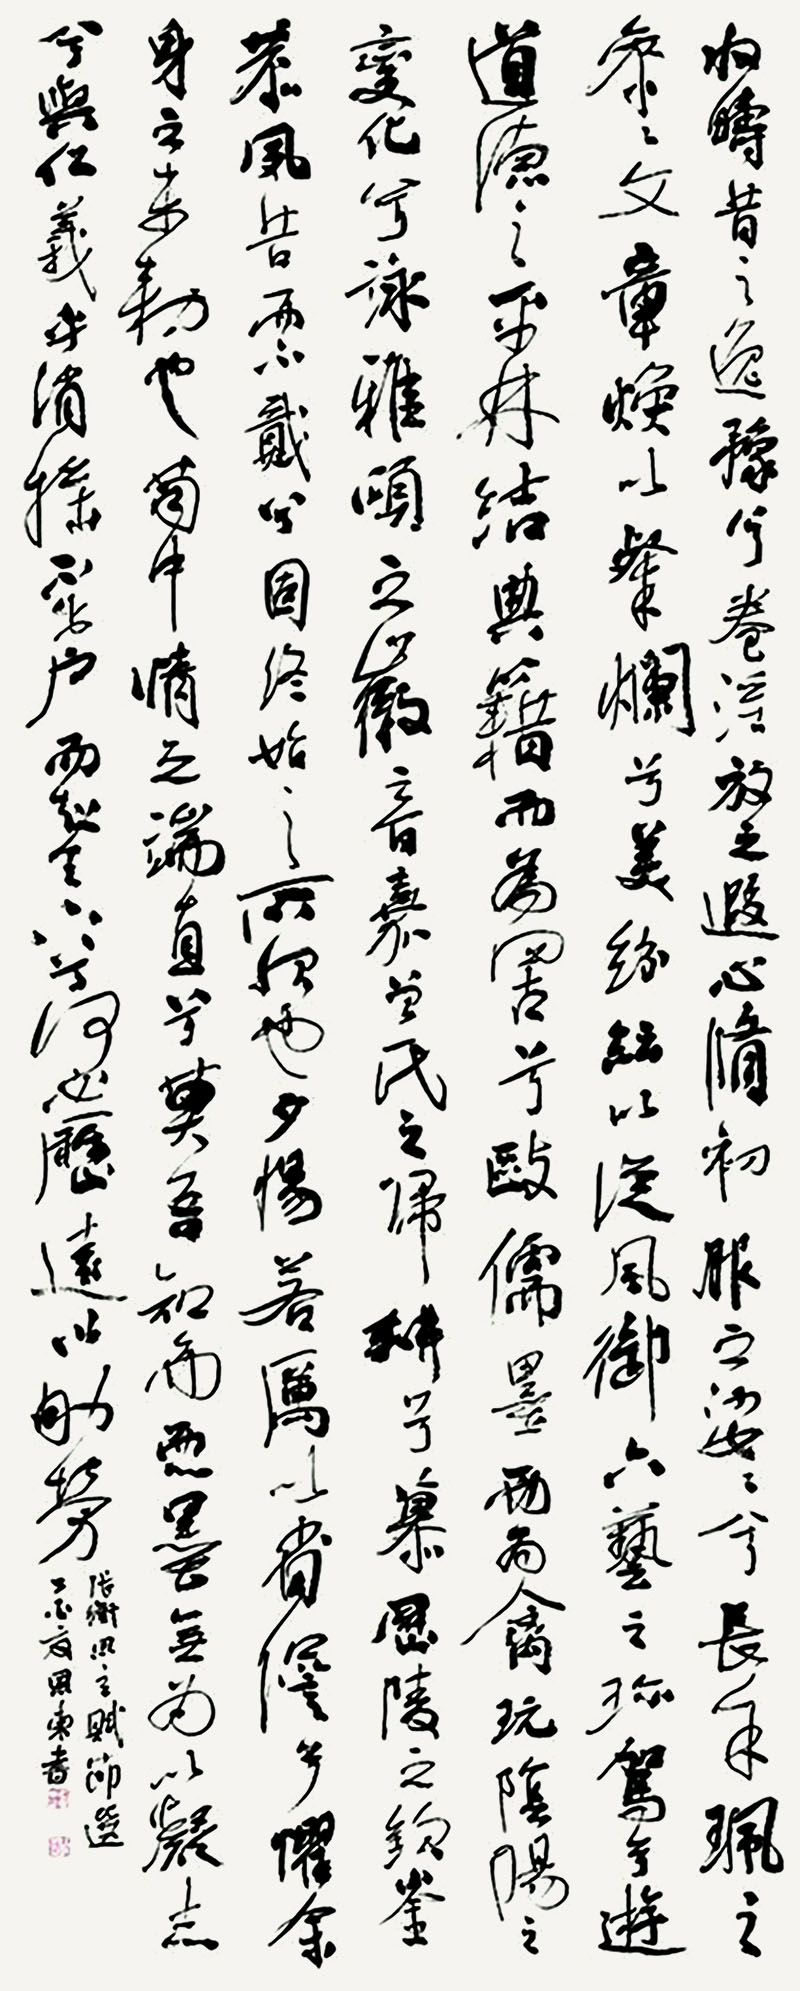 收疇昔之逸豫兮卷淫放之遐心脩初服之娑〻兮長余珮之
參〻文章煥以粲爛兮美紛紜以從風御六藝之珍駕兮遊
道德之平林結典籍而為罟兮敺儒墨而為禽玩陰陽之
變化兮詠雅頌之徽音嘉曾氏之歸耕兮慕歷陵之欽崟
恭夙昔而不貳兮固終始之所服也夕惕若厲以省諐兮懼余
身之未勑也苟中情之端直兮莫吾知而不恧墨無為以凝志
兮與仁義乎消搖不出戶而知天下兮何必歷遠以劬勞
張衡思玄賦節選
東書